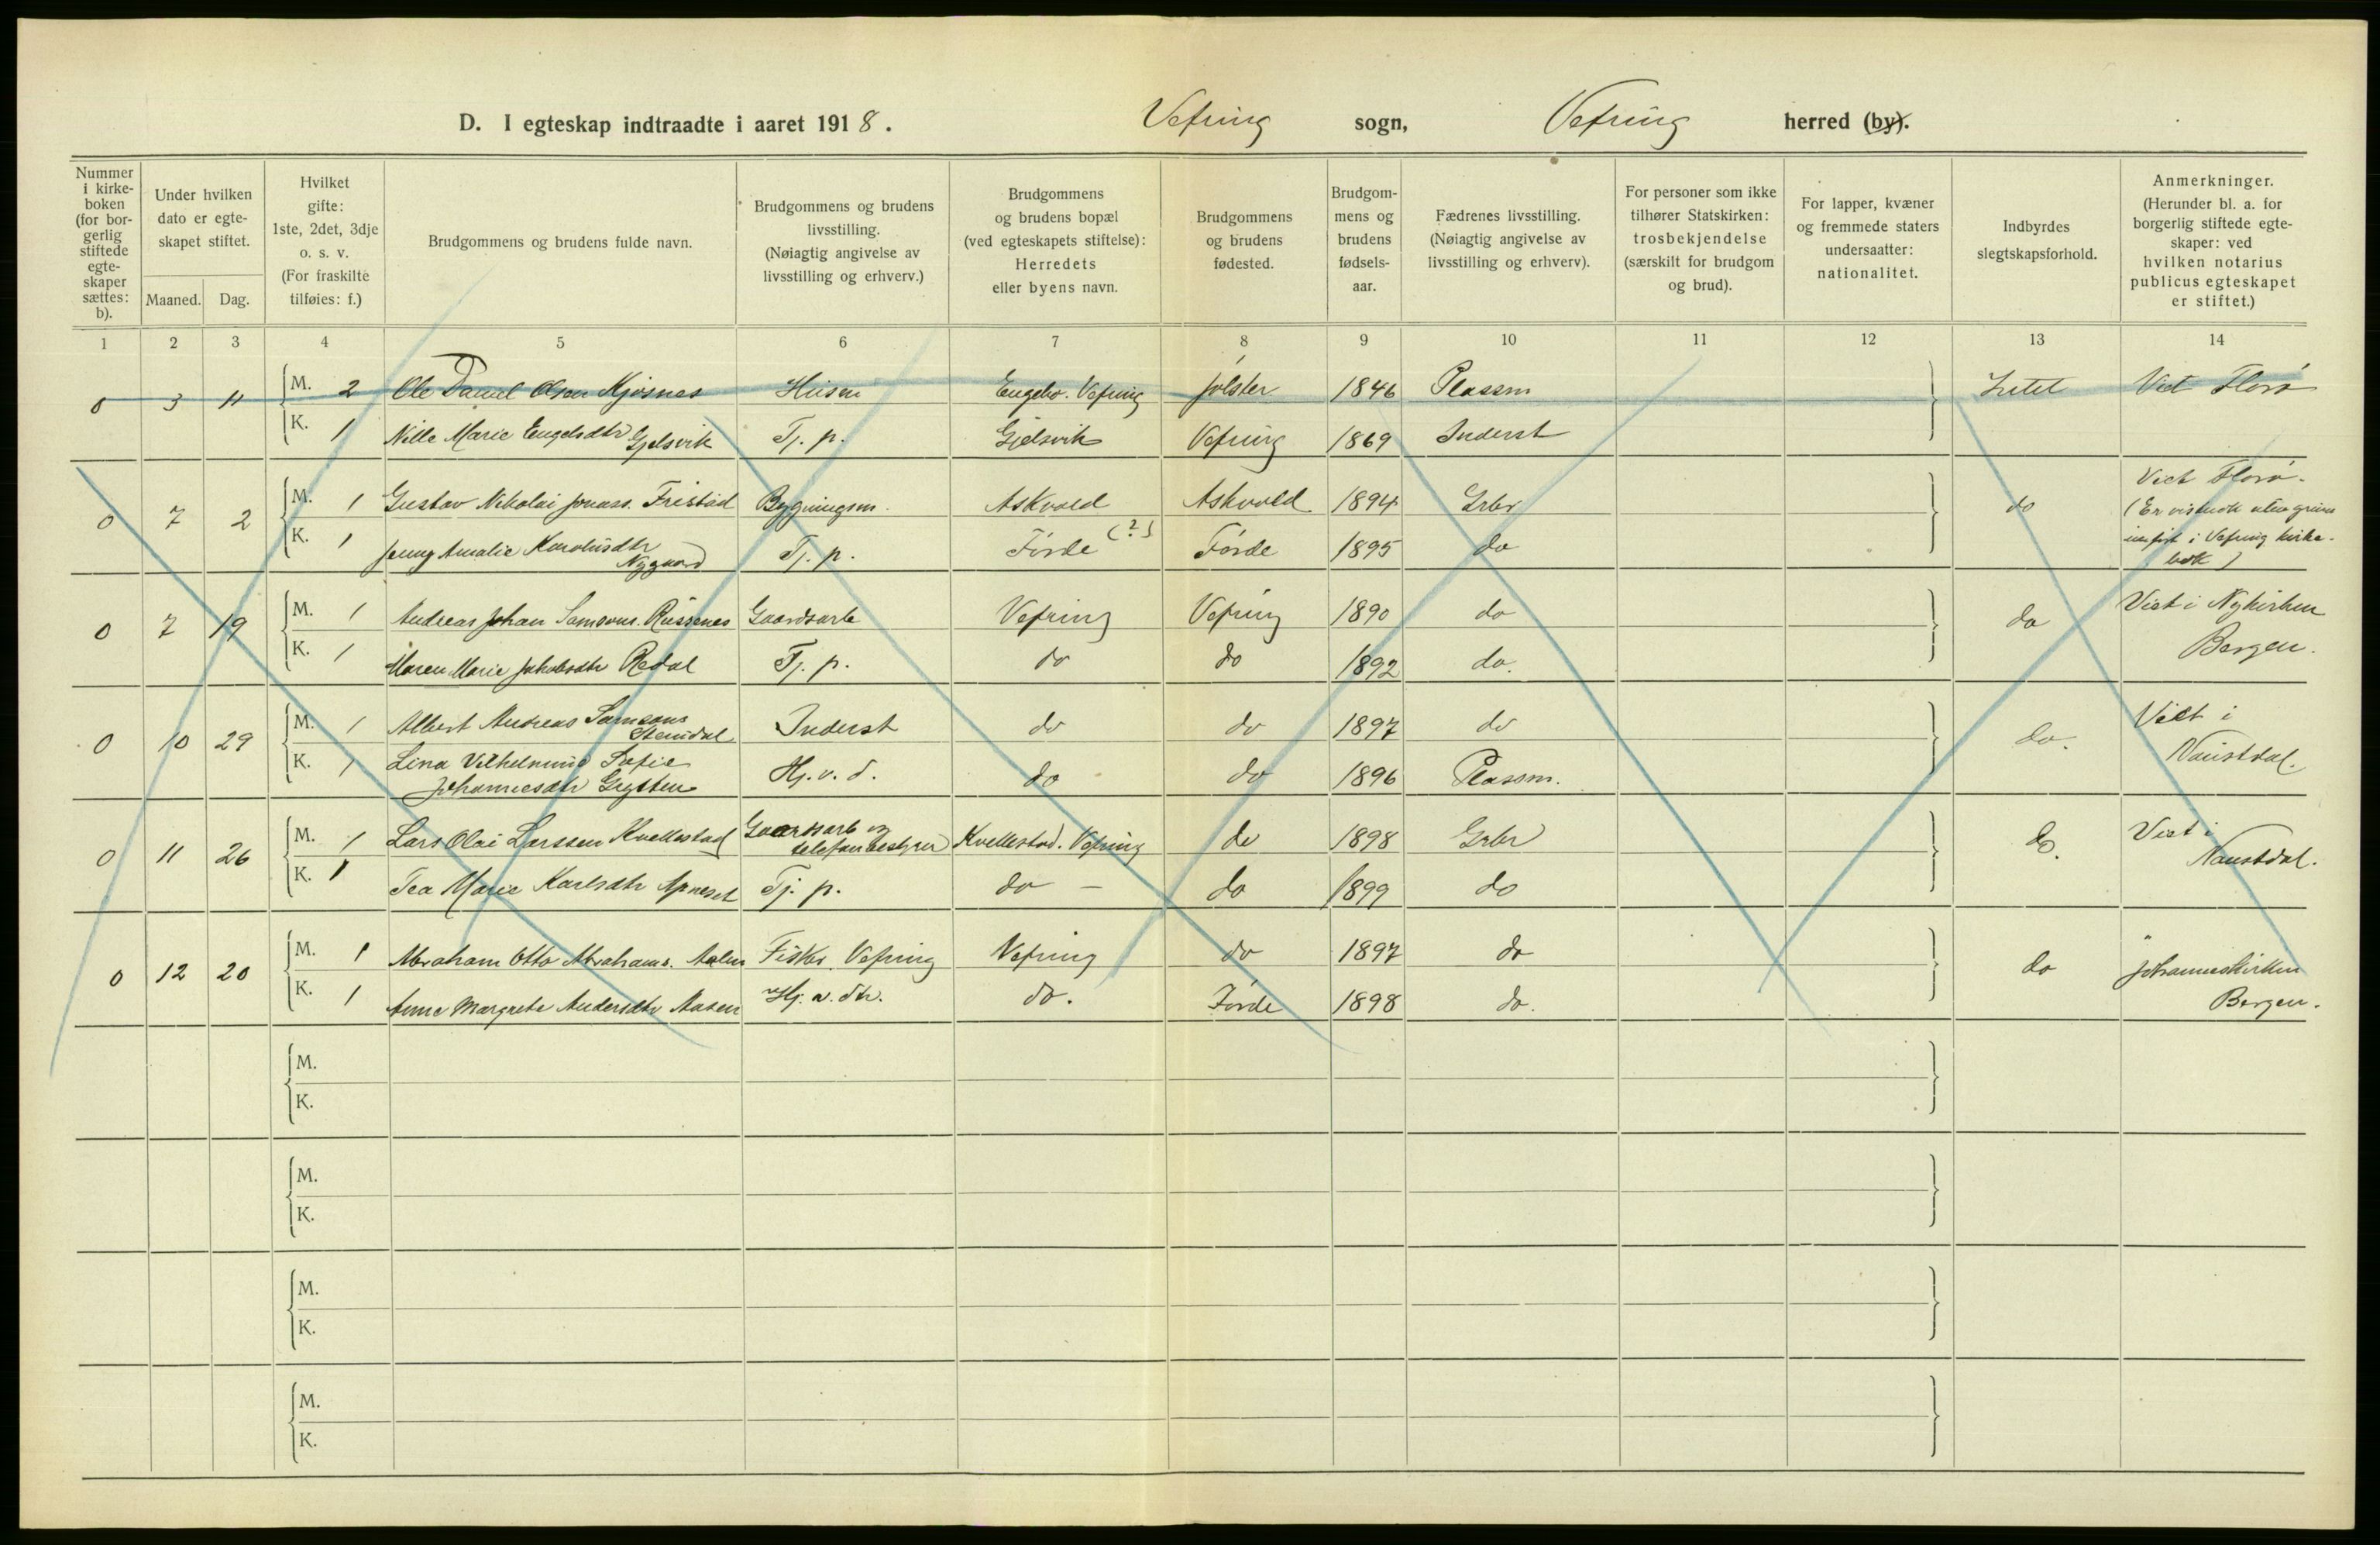 D. I egteskap indtraadte i aaret 1918. Vefring sogn, Vefring herred (by).
Nummer i kirke-boken (for bor-gerlig stiftede egte-skaper sættes: b).
Under hvilken dato er egte-skapet stiftet.
Maaned. Dag.
Hvilket gifte: 1ste, 2det, 3dje o. s. v. (For fraskilte tilføies: f.)
Brudgommens og brudens fulde navn.
Brudgommens og brudens livsstilling. (Nøiagtig angivelse av livsstilling og erhverv.)
Brudgommens og brudens bopæl (ved egteskapets stiftelse): Herredets eller byens navn.
Brudgommens og brudens fødested.
Brudgom-mens og brudens fødsels-aar.
Fædrenes livsstilling. (Nøiagtig angivelse av livsstilling og erhverv).
For personer som ikke tilhører Statskirken: trosbekjendelse (særskilt for brudgom og brud).
For lapper, kvæner og fremmede staters undersaatter: nationalitet.
Indbyrdes slegtskapsforhold.
Anmerkninger. (Herunder bl. a. for borgerlig stiftede egte-skaper: ved hvilken notarius publicus egteskapet er stiftet.)
1 2 3 4 5 6 7 8 9 10 11 12 13 14
0 3 11 M. 2 Ole Daniel Olsen Kjøsnes Husm Engebø. Vefring Jølster 1846 Plassm Intet Viet Florø
K. 1 Nille Marie Engelsdtr Gjelsvik Tj. p. Gjelsvik Vefring 1869 Inderst
0 7 2 M. 1 Gustav Nikolai Jonass. Fristad Bygningsm. Askvold Askvold 1894 Grbr do Viet Florø.
K. 1 Jenny Amalie Karolusdtr Nygaard Tj. p. Førde (?) Førde 1895 do
i Vefring kirke-
bok)
0 7 19 M. 1 Andreas Johan Samsons. Russenes Gaardsarb Vefring Vefring 1890 do do Viet i Nykirken
K. 1 Maren Marie Jakobsdtr Redal Tj. p. do do 1892 do. Bergen.
0 10 29 M. 1 Albert Andreas Samsons Steindal Inderst do do 1897 do do. Viet i
K. 1 Lina Vilhelmine Sofie Johannesdtr Grytten Hj. v. d. do do 1896 Plassm. Naustdal.
0 11 26 M. 1 Lars Olai Larssen Kvellestad Gaardsarb og telefonbestyrer Kvellestad. Vefring do 1898 Grbr do. Viet i
K. 1 Tea Marie Karlsdtr Apneset Tj. p. do – do 1899 do Naustdal.
0 12 20 M. 1 Abraham Otto Abrahams. Fisker. Vefring Vefring do 1897 do do Johanneskirken
K. 1 Anne Margrete Andersdtr Aasen Hj. v. dtr. do. Førde 1898 do. Bergen.
M.
K.
M.
K.
M.
K.
M.
K.